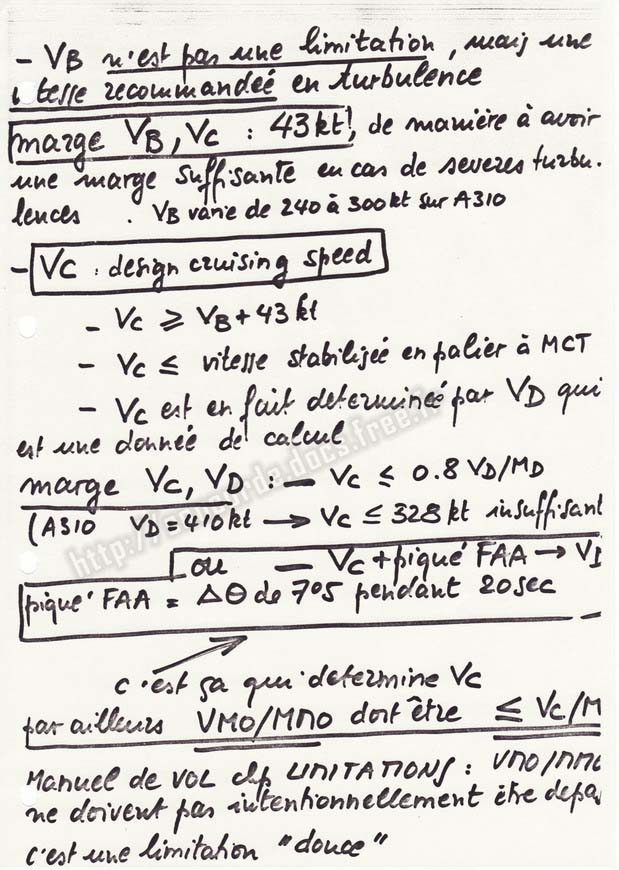 - VB n'est pas une limitation, mais une
tesse recommandéé en turbulence
marge VB, VC : 43 kt!, de manière à avoir
une marge suffisante en cas de severes turbu.
lences . VB varie de 240 à 300 kt sur A310
- VC : design cruising speed
- VC ≥ VB + 43 kt
- VC ≤ vitesse stabilisée en palier à MCT
- VC est en fait determinéé par VD qui
est une donnée de calcul
marge VC, VD : - VC ≤ 0.8 VD/MD
(A310 VD = 410 kt → VC ≤ 328 kt insuffisant
ou - VC + piqué FAA →
piqué FAA = Δθ de 7°5 pendant 20 sec
c'est ça qui determine VC
par ailleurs VMO/MMO doit être ≤ VC/M
Manuel de VOL chp LIMITATIONS : VMO/MMO
ne doivent pas intentionnellement être depa
c'est une limitation "douce"